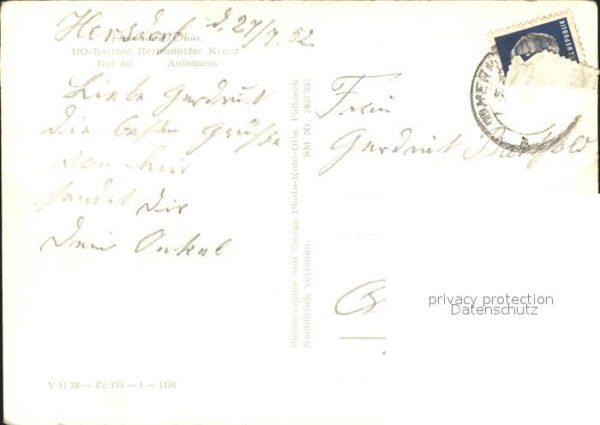 Hersdorf d. 27/7. 52
HO-Rasthof Hermsdorfer Kreuz
Ruf 461 Autobahn
Liebe Gerdrut
die besten Grüße
von hier
sendet dir
Dein Onkel
Photographie und Verlag Photo-Kohl-Otte, Pößneck
SM Nr. 1057/352
Nachdruck verboten.
V 11 28 — Zc 175 — 1 — 1151
REPUBLIK
Frln
Gerdrut
privacy protection
Datenschutz